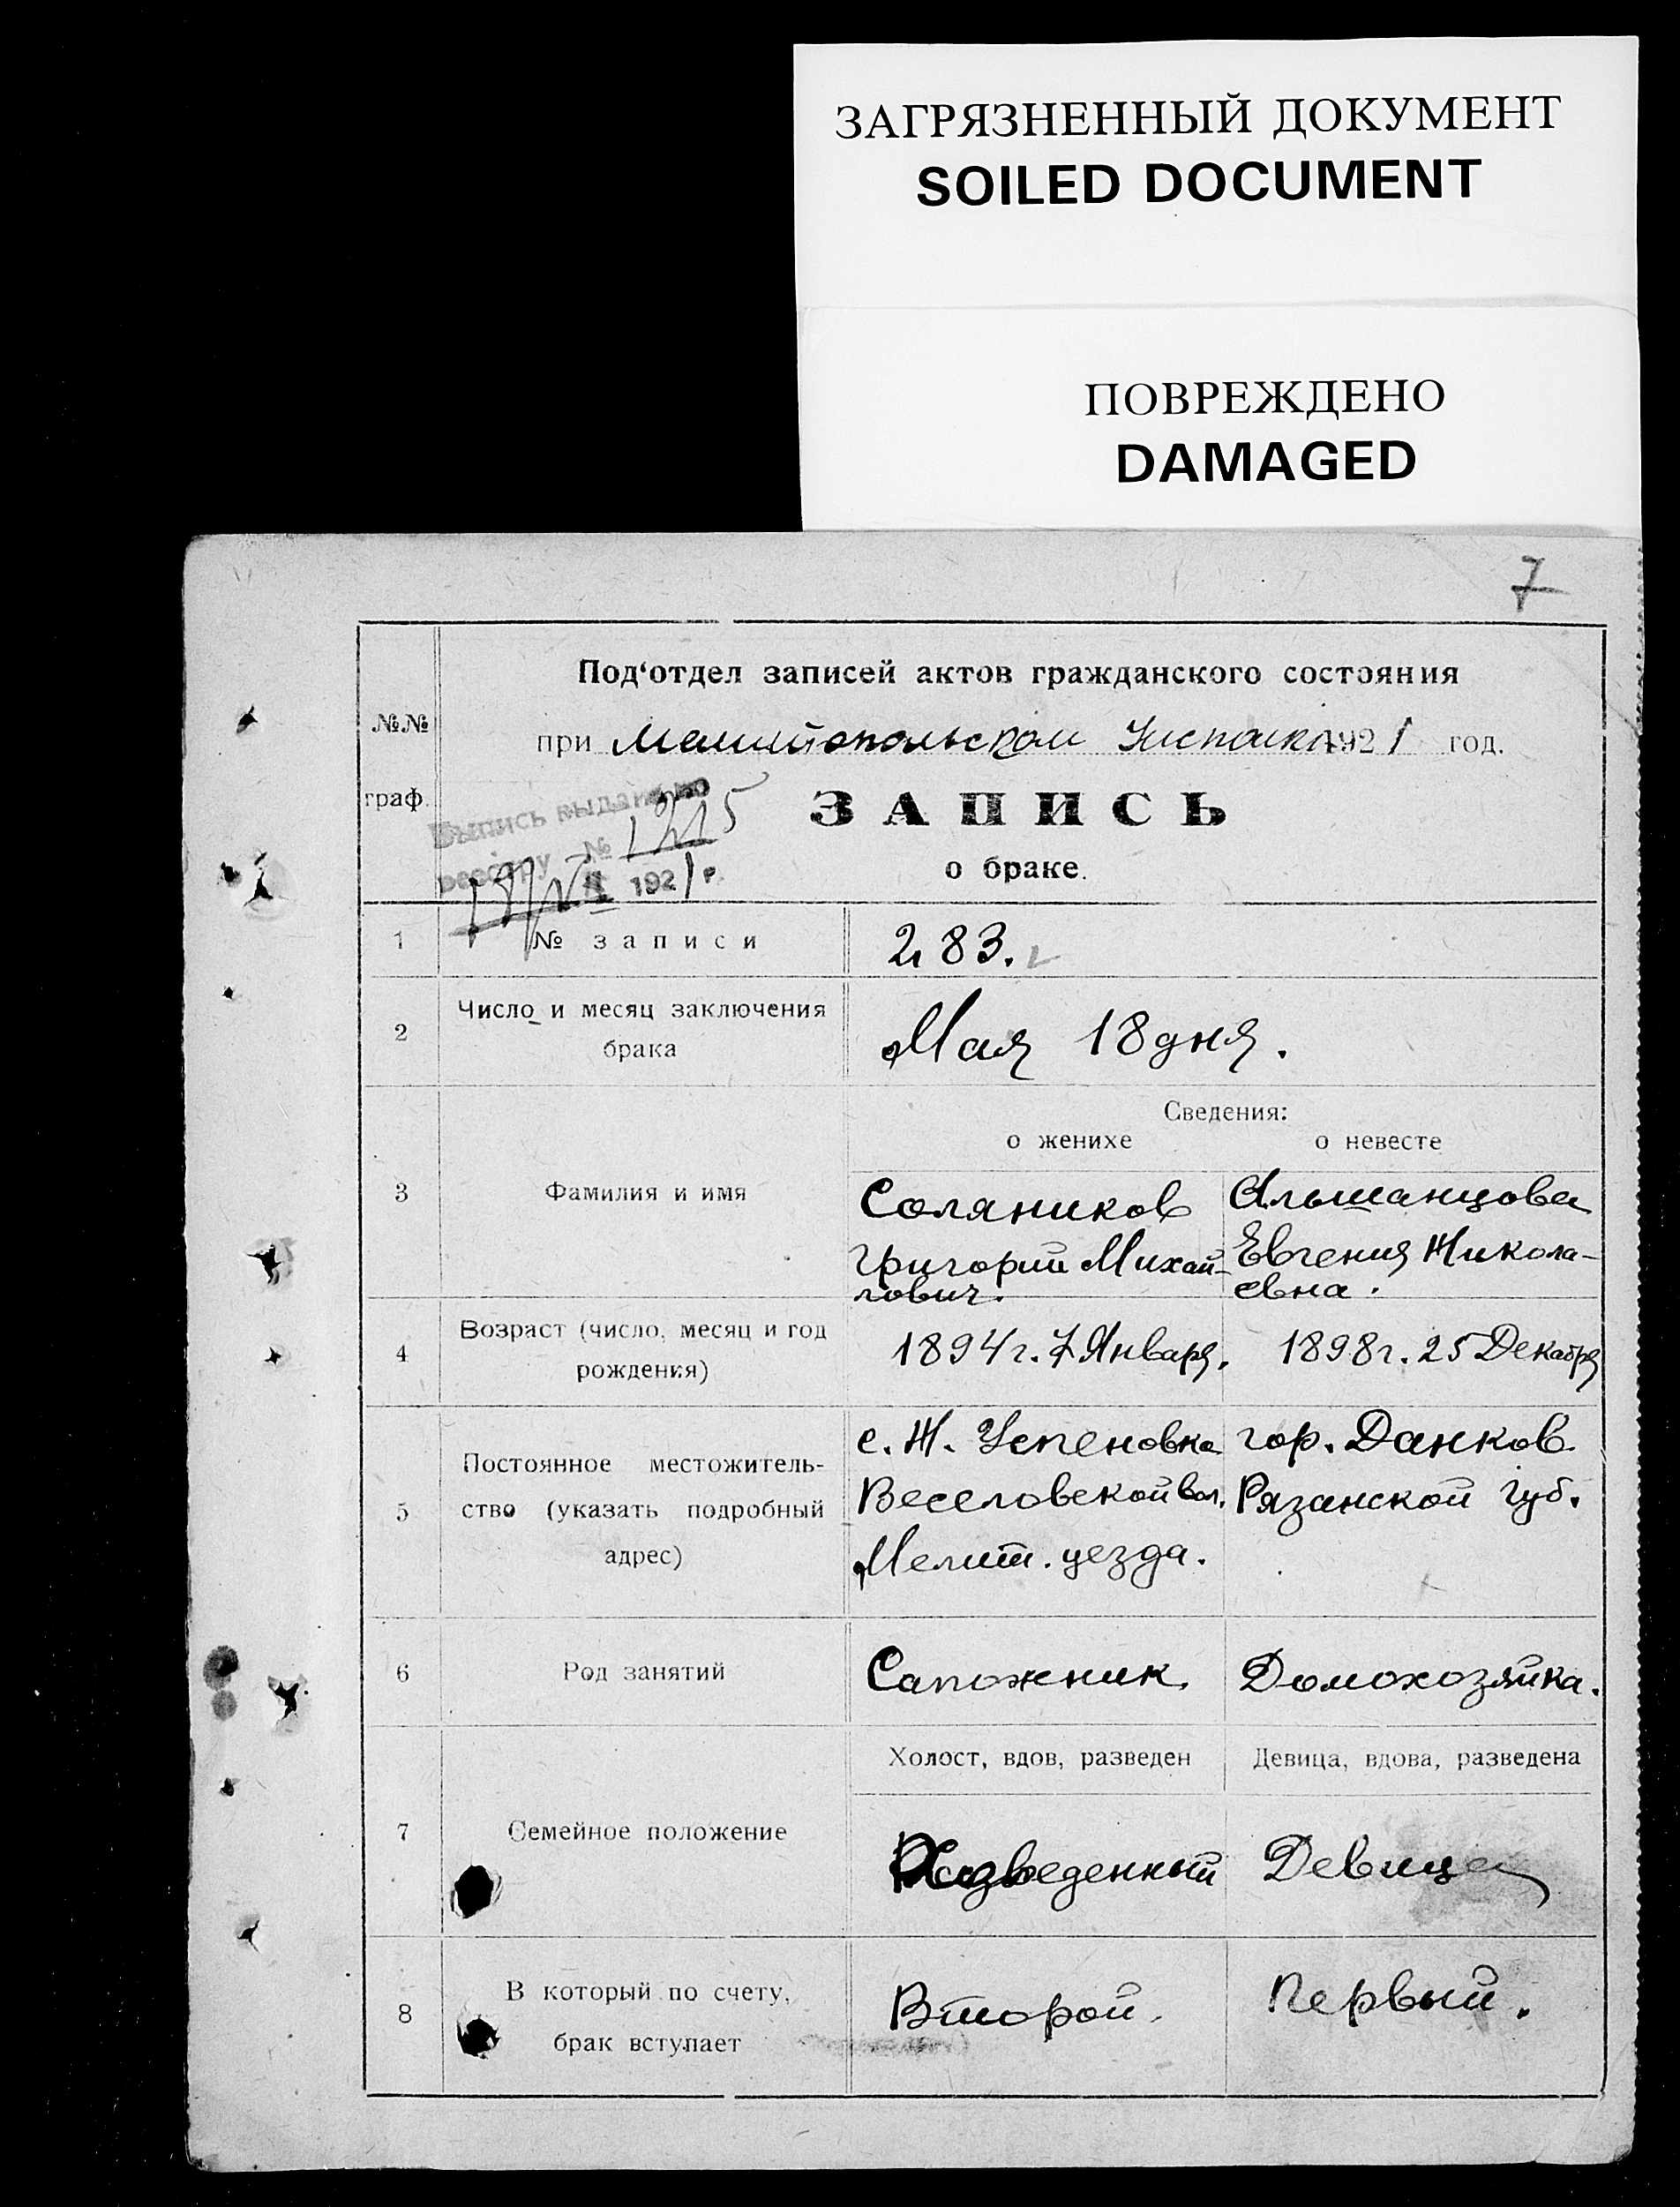 ЗАГРЯЗНЕННЫЙ ДОКУМЕНТ
SOILED DOCUMENT
ПОВРЕЖДЕНО
DAMAGED
7
№№
граф.
Под‘отдел записей актов гражданского состояния
при Мелитопольском Уисполк. 1921 год.
Выпись выдана по
реестру № 1215
1921 г.
ЗАПИСЬ
о браке.
1 № записи 283.
2 Число и месяц заключения
брака
Мая 18 дня.
Сведения:
о женихе о невесте
3 Фамилия и имя
Соляников Альшанцова
Григорий Михай- Евгения Никола-
лович. евна.
4 Возраст (число, месяц и год
рождения)
1894 г. 7 Января. 1898 г. 25 Декабря
5 Постоянное местожитель-
ство (указать подробный
адрес)
с. Н. Успеновка гор. Данков
Веселовской вол. Рязанской губ.
Мелит. уезда.
6 Род занятий Сапожник. Домохозяйка.
Холост, вдов, разведен Девица, вдова, разведена
7 Семейное положение Разведенный Девица
8 В который по счету,
брак вступает
Второй. Первый.